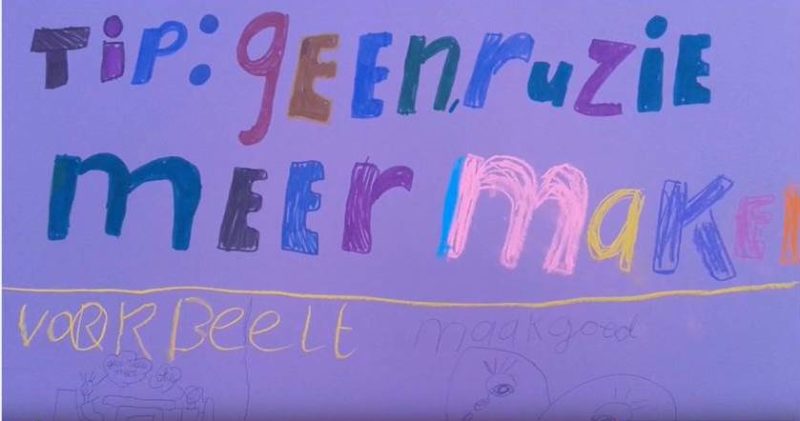 Tip: geen ruzie
meer maken
VOORBEELT
maak goed